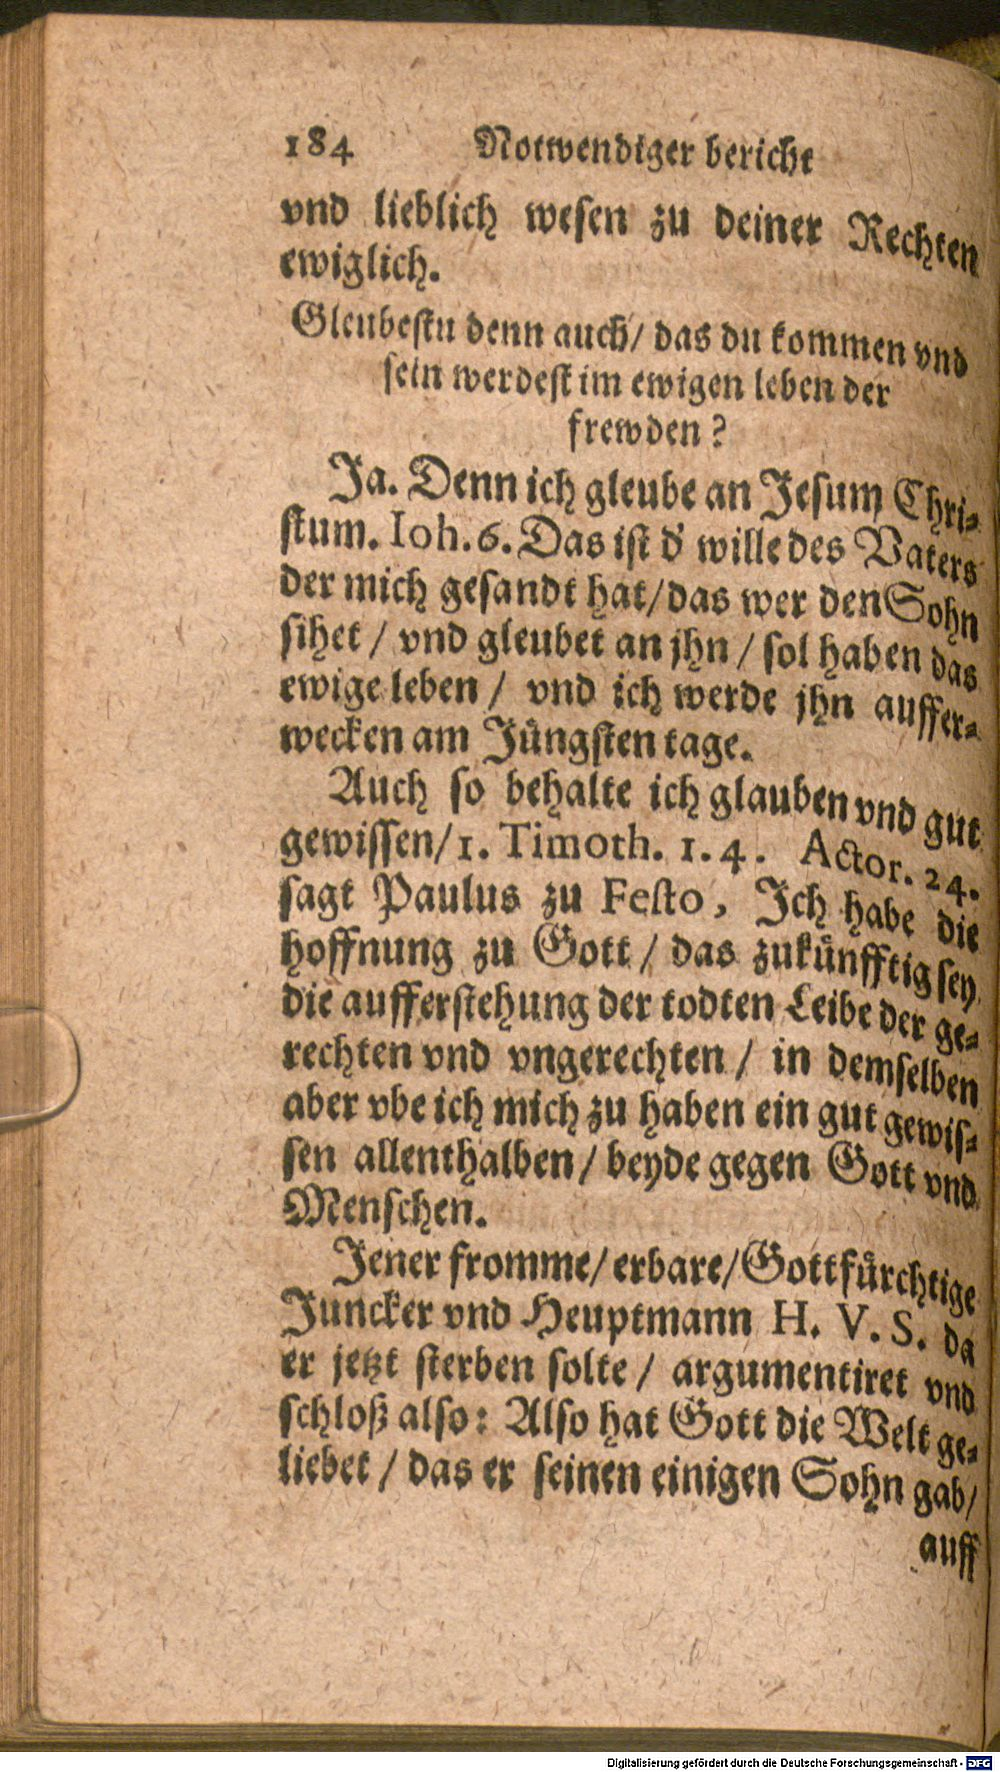 184 Notwendiger bericht
vnd lieblich wesen zu deiner Rechten
ewiglich.
Gleubestu denn auch/ das du kommen vnd
sein werdest im ewigen leben der
frewden?
Ja. Denn ich gleube an Jesum Chri-
stum. Ioh. 6. Das ist d' wille des Vaters
der mich gesandt hat/das wer den Sohn
sihet / vnd gleubet an jhn / sol haben das
ewige leben / vnd ich werde jhn auffer-
wecken am Jüngsten tage.
Auch so behalte ich glauben vnd gut
gewissen/1. Timoth. 1. 4. Actor. 24.
sagt Paulus zu Festo, Ich habe die
hoffnung zu Gott / das zukünfftig sey
die aufferstehung der todten Leibe der ge-
rechten vnd vngerechten / in demselben
aber vbe ich mich zu haben ein gut gewis-
sen allenthalben / beyde gegen Gott vnd
Menschen.
Jener fromme/ erbare/Gottfürchtige
Juncker vnd Heuptmann H. V. S. da
er jetzt sterben solte / argumentiret vnd
schloß also: Also hat Gott die Welt ge-
liebet / das er seinen einigen Sohn gab/
auff
Digitalisierung gefördert durch die Deutsche Forschungsgemeinschaft - DFG